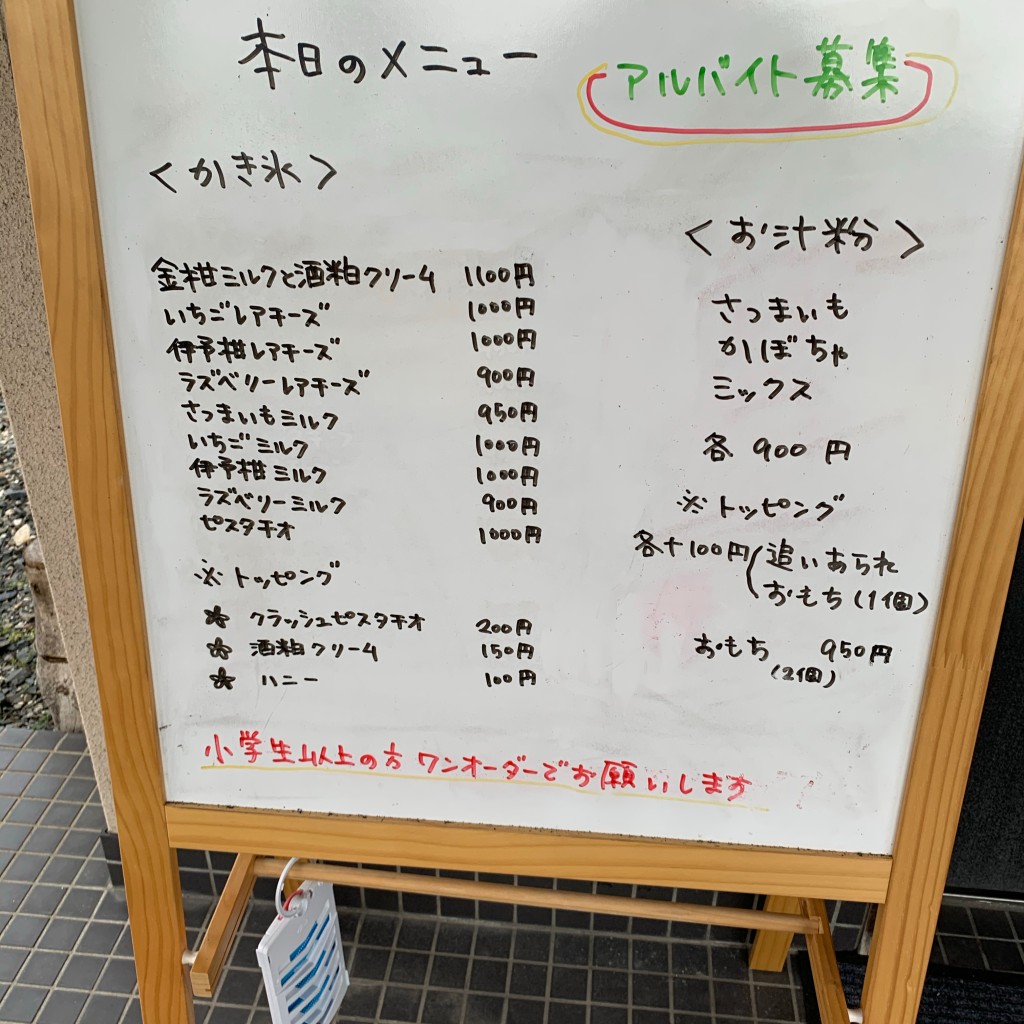 本日のメニュー
アルバイト募集
<かき氷>
金柑ミルクと酒粕クリーム 1100円
いちごレアチーズ 1000円
伊予柑レアチーズ 1000円
ラズベリーレアチーズ 900円
さつまいもミルク 950円
いちごミルク 1000円
伊予柑ミルク 1000円
ラズベリーミルク 900円
ピスタチオ 1000円
※トッピング
☆ クラッシュピスタチオ 200円
☆ 酒粕クリーム 150円
☆ ハニー 100円
<お汁粉>
さつまいも
かぼちゃ
ミックス
各 900円
※トッピング
各+100円(追いあられ
おもち(1個)
おもち 950円
(2個)
小学生以上の方 ワンオーダーでお願いします